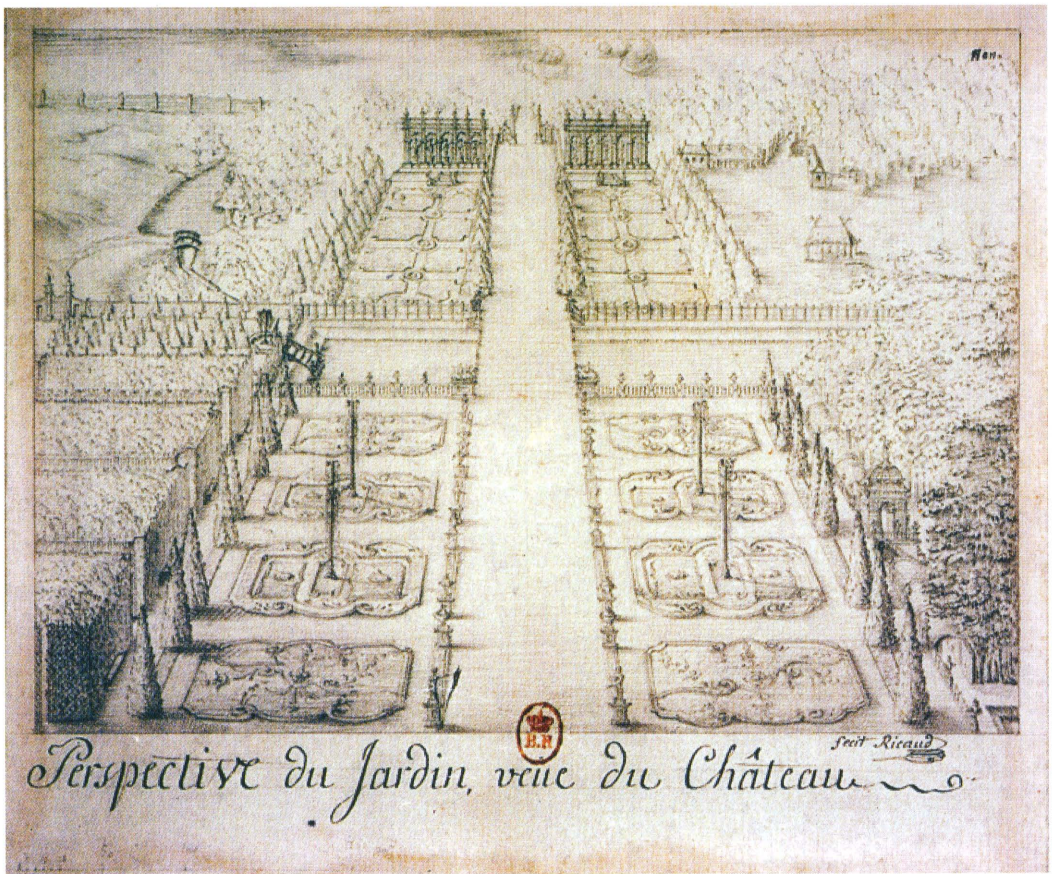 fecit Ricaud
Perspective du Jardin, veüe du Château
B.R